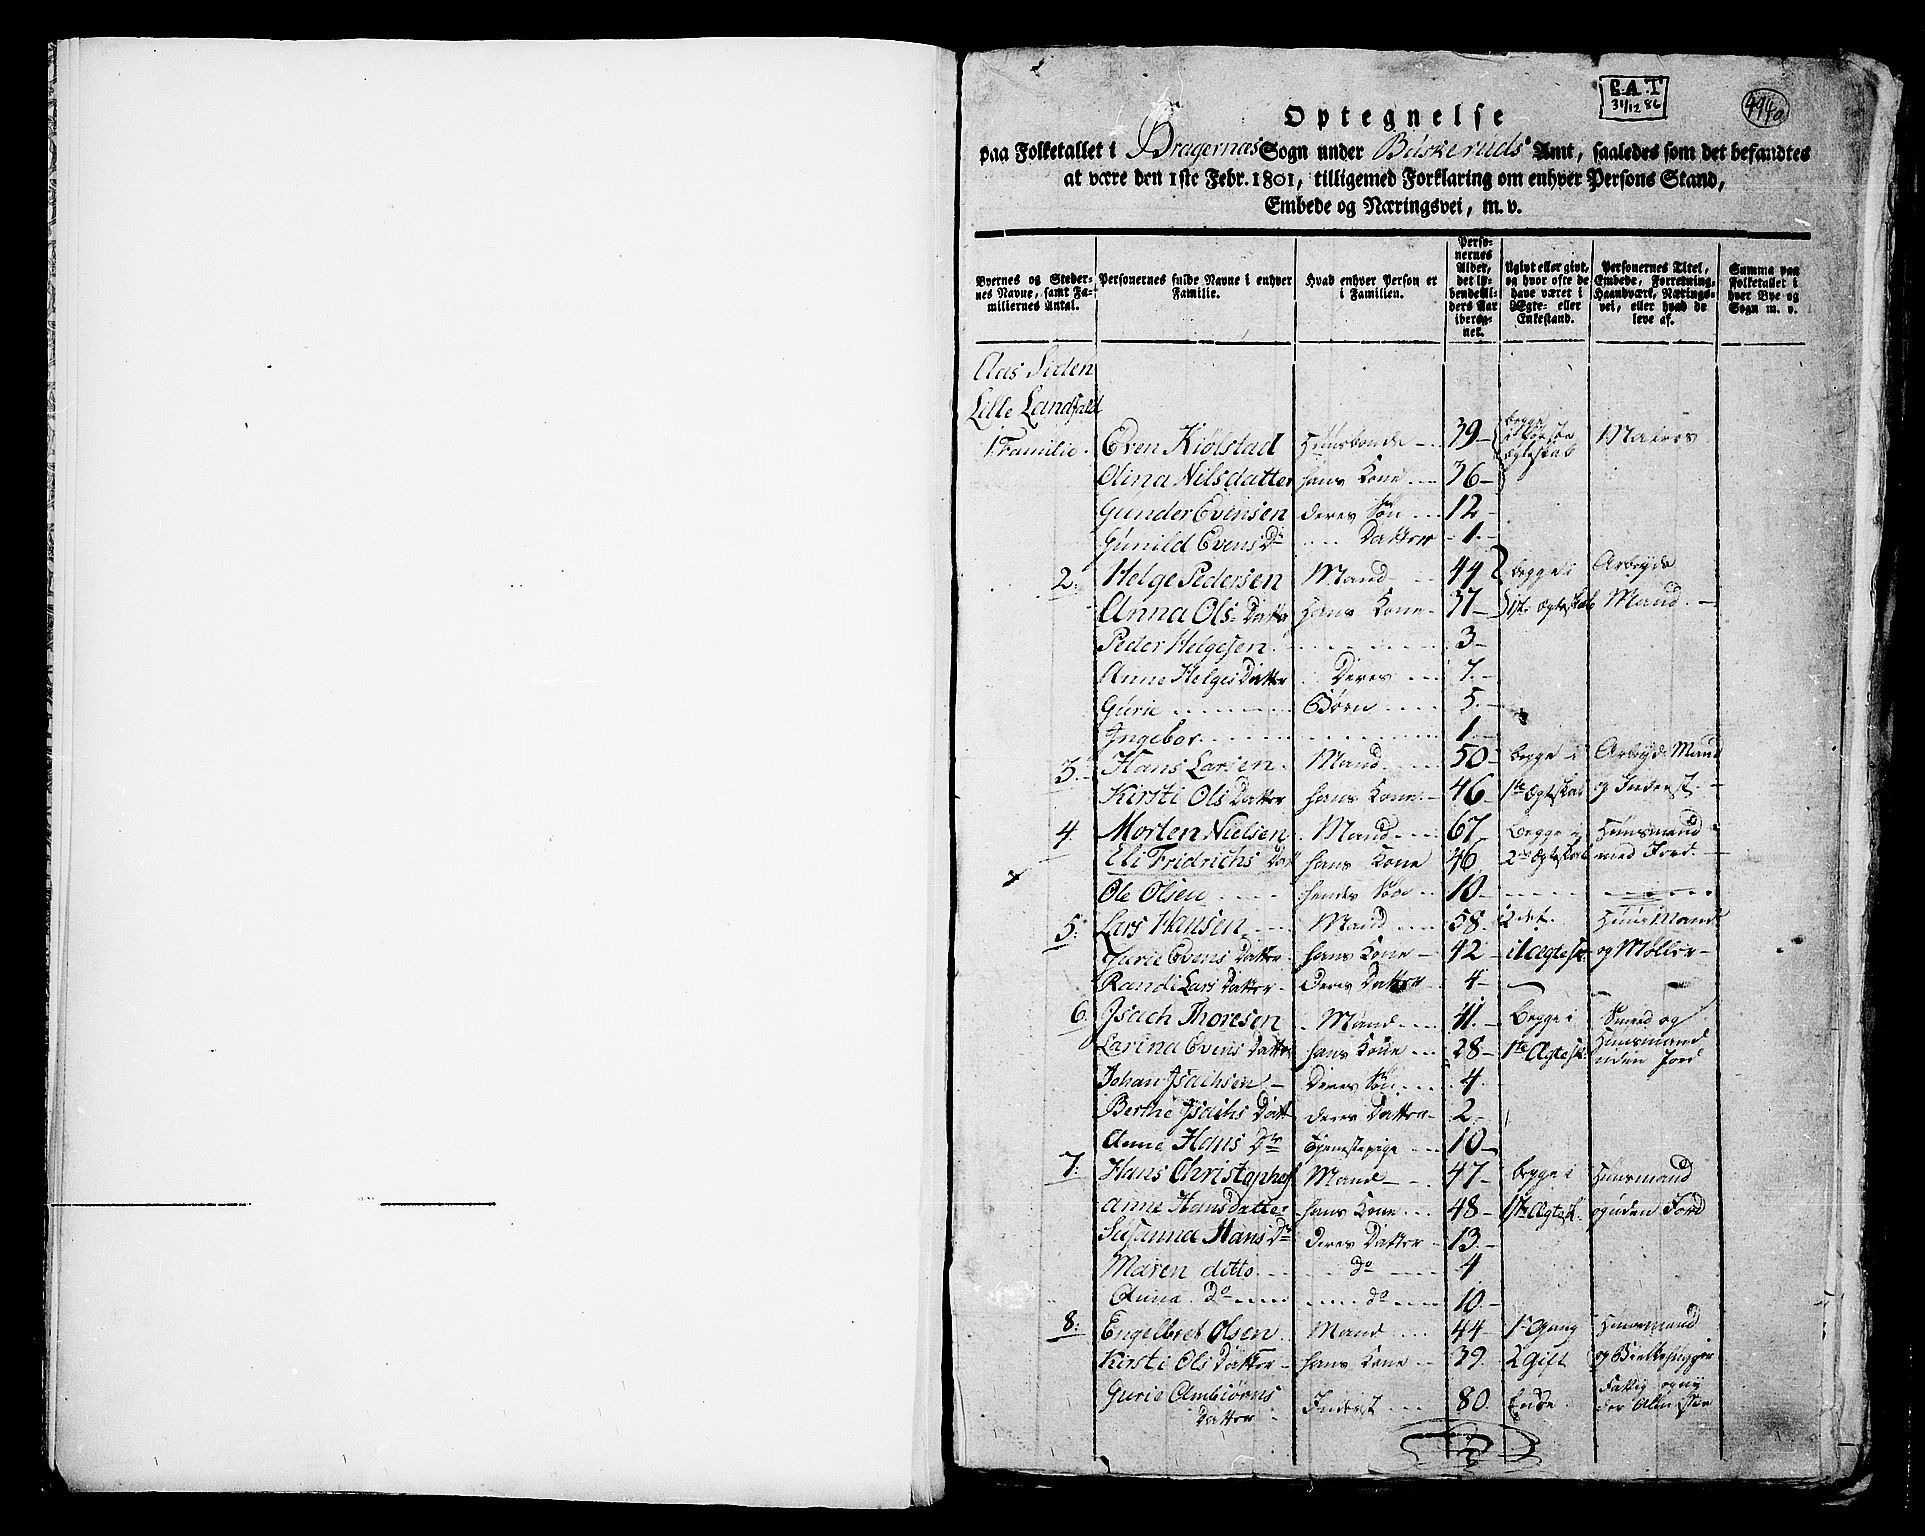 E.A.T
31/12 86
494a
Optegnelse
paa Folketallet i Bragernæs Sogn under Buskeruds Amt, saaledes som det befandtes
at være den 1ste Febr. 1801, tilligemed Forklaring om enhver Persons Stand,
Embede og Næringsvei, m. v.
Byernes og Steder-
nes Navne, samt Fa-
miliernes Antal.
Personernes fulde Navne i enhver
Familie.
Hvad enhver Person er
i Familien.
Perso-
nernes
Alder,
det lø-
bende Al-
ders Aar
ibereg-
net.
Ugivt eller givt,
og hvor ofte de
have været i
Ægte- eller
Enkestand.
Personernes Titel,
Embede, Forretning,
Haandværk, Nærings-
vei, eller hvad de
leve af.
Summa paa
Folketallet i
hver Bye og
Sogn m. v.
Aas Siden
Lille Landfald
1 Familie. Even Kiølstad Huusbonde 39 begge i første ægteskab Matros
Olina Nilsdatter hans Kone 36
Gunder Evensen deres Søn 12
Gunild Evens Dr Datter 1
2. Helge Pedersen Mand 44 begge i Arbeyds
Anna Ols Datter hans Kone 37 1st ægteskab Mand
Peder Helgesen 3
Anne Helges Datter Deres 7
Gurie Børn 5
Ingebor 1
3. Hans Larsen Mand 50 begge i Arbeyds Mand
Kirsti Ols Datter hans Kone 46 1te Ægteskab og Inderst
4. Morten Nielsen Mand 67 begge i Huusmand
Eli Fridrichs Datt hans Kone 46 2det Ægteskab med Jord
Ole Olsen hendes Søn 10
5. Lars Hansen Mand 58 2det Huusmand
Evens Datter hans Kone 42 Ægtesk. og Møller
Randi Lars Datter Deres Datter 4
6. Isach Thoresen Mand 41 Begge i Smed og
Larina Evens Datter hans Kone 28 1te Ægtesk. Huusmand uden Jord
Johan Isachsen Deres Søn 4
Berthe Isachs Datt deres Datter 2
Anne Hans Dr Tjenestepige 10
7. Hans Christophers Mand 47 begge i Huusmand
Anne Hansdatter hans Kone 48 1te Ægtesk. uden Jord
Susanna Hans Dr deres Datter 13
Maren ditto do 4
Anna Do do 10
8. Engelbret Olsen Mand 44 1te Gang Huusmand
Kirsti Ols Datter hans Kone 39 Gift og Bielkehugger
Gurie Ambiørns Datter Inderst 80 Enke Fattig og ny der Almisse